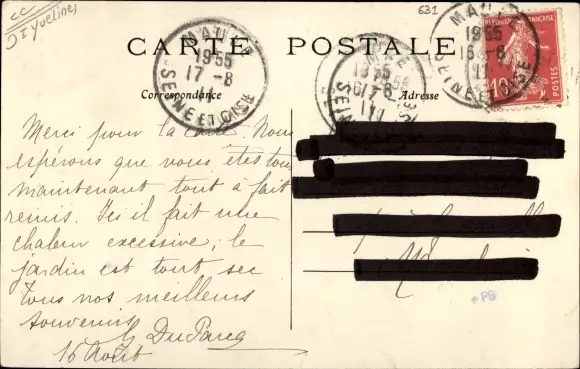 CC
J I Yvelines
631
CARTE POSTALE
Correspondance
Adresse
MAULE
1955
17-8
SEINE ET OISE
MAULE
1955
SEINE ET OISE
MAULE
1955
16-8
11
SEINE ET OISE
RÉPUBLIQUE FRANÇAISE
10
POSTES
Merci pour la carte. Nous
espérons que vous êtes tous
maintenant tout à fait
remis. Ici il fait une
chaleur excessive ; le
jardin est tout sec
Tous nos meilleurs
souvenirs
Du Parcq
16 Août
PB